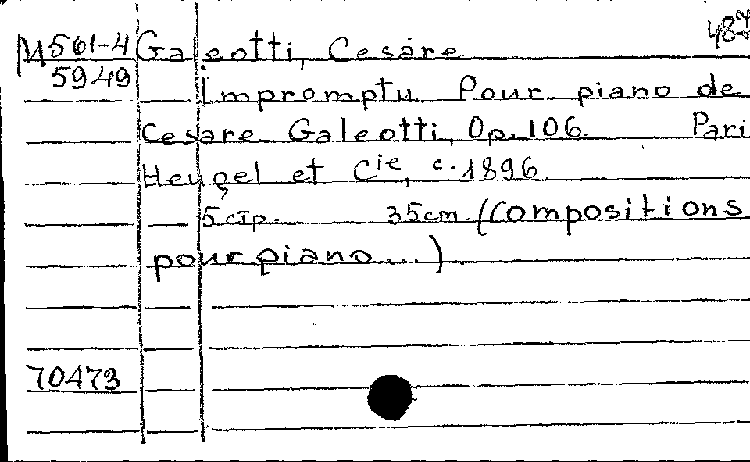 M561-4 Galeotti, Cesare
5949 Impromptu Pour piano de
Cesare Galeotti, Op. 106. Pari
Heugel et Cie, c.1896.
35cm. (Compositions
pour piano...)
70473